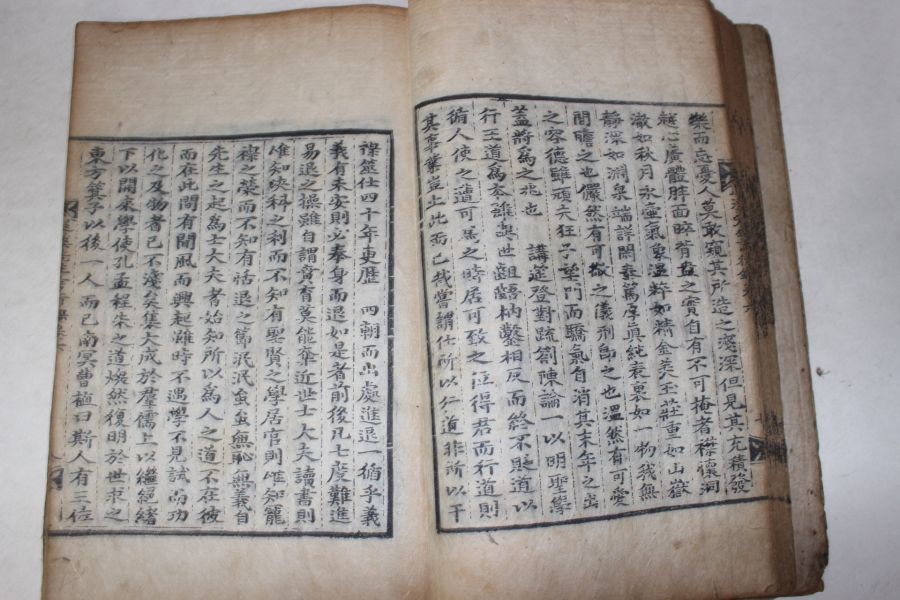 樂而忘憂人莫敢窺其所造之淺深但見其充積發
越心廣體胖面睟背盎之實自有不可掩者襟懷洞
澈如秋月氷壺氣象溫粹如精金美玉莊重如山嶽
靜深如淵泉端詳閒泰篤厚眞純表裏如一物我無
間瞻之也儼然有可敬之儀刑卽之也溫然有可愛
之容德雖頑夫狂子望門而驕氣自消其末年之出
蓋將爲之兆也 講筵登對疏劄陳論一以明聖學
行王道爲本雖與世齟齬枘鑿相反而終不貶道以
循人使之遭可爲之時居可致之位得君而行道則
其事業豈止此而已哉嘗謂仕所以行道非所以干
祿筮仕四十年更歷 四朝而出處進退一循乎義
義有未安則必奉身而退如是者前後凡七度難進
易退之操雖自謂賁育莫能奪近世士大夫讀書則
惟知決科之利而不知有聖賢之學居官則唯知寵
祿之榮而不知有恬退之節泯泯蚩蚩無恥無義自
先生之起爲士大夫者始知所以爲人之道不在彼
而在此間有聞風而興起雖時不遇學不見試而功
化之及物者已不淺矣集大成於羣儒上以繼絕緖
下以開來學使孔孟程朱之道煥然復明於世求之
東方箕子以後一人而已南冥曺植曰斯人有王佐